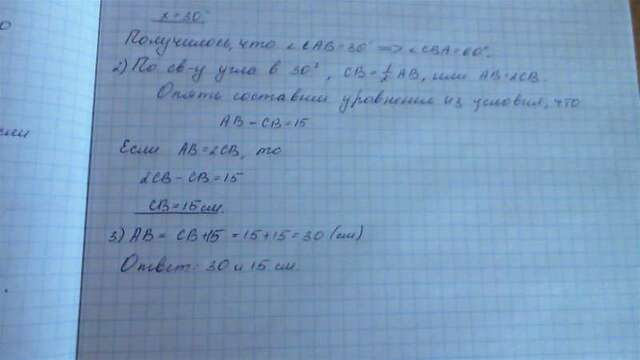 x = 30°
Получилось, что ∠CAB=30° => ∠CBA=60°.
2) По св-у угла в 30°, CB=½AB, или AB=2CB.
Опять составим уравнение из условия, что
AB-CB=15
Если AB=2CB, то
2CB-CB=15
CB=15см.
3) AB= CB+15 =15+15=30 (см)
Ответ: 30 и 15 см.